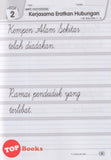 2
Kerjasama Eratkan Hubungan
Kempen Alam Sekitar
telah diadakan.
Ramai penduduk yang
terlibat.
TOP BOOKS